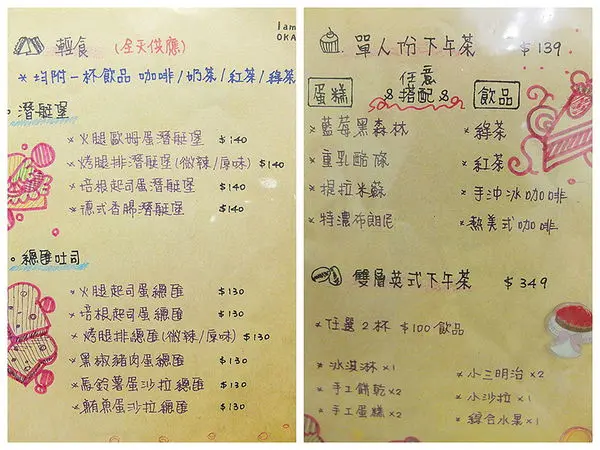 I am
OKA
輕食 (全天供應)
* 均附一杯飲品 咖啡/奶茶/紅茶/綠茶
。潛艇堡
* 火腿歐姆蛋潛艇堡 $140
* 烤腿排潛艇堡(微辣/原味) $140
* 培根起司蛋潛艇堡 $140
* 德式香腸潛艇堡 $140
。總匯吐司
* 火腿起司蛋總匯 $130
* 培根起司蛋總匯 $130
* 烤腿排總匯(微辣/原味) $130
* 黑椒豬肉蛋總匯 $130
* 馬鈴薯蛋沙拉總匯 $130
* 鮪魚蛋沙拉總匯 $130
單人份下午茶 $139
蛋糕 任意搭配 飲品
* 藍莓黑森林
* 重乳酪條
* 提拉米蘇
* 特濃布朗尼
* 綠茶
* 紅茶
* 手沖冰咖啡
* 熱美式咖啡
雙層英式下午茶 $349
* 任選2杯 $100飲品
* 冰淇淋×1
* 手工餅乾×2
* 手工蛋糕×2
* 小三明治×2
* 小沙拉×1
* 綜合水果×1